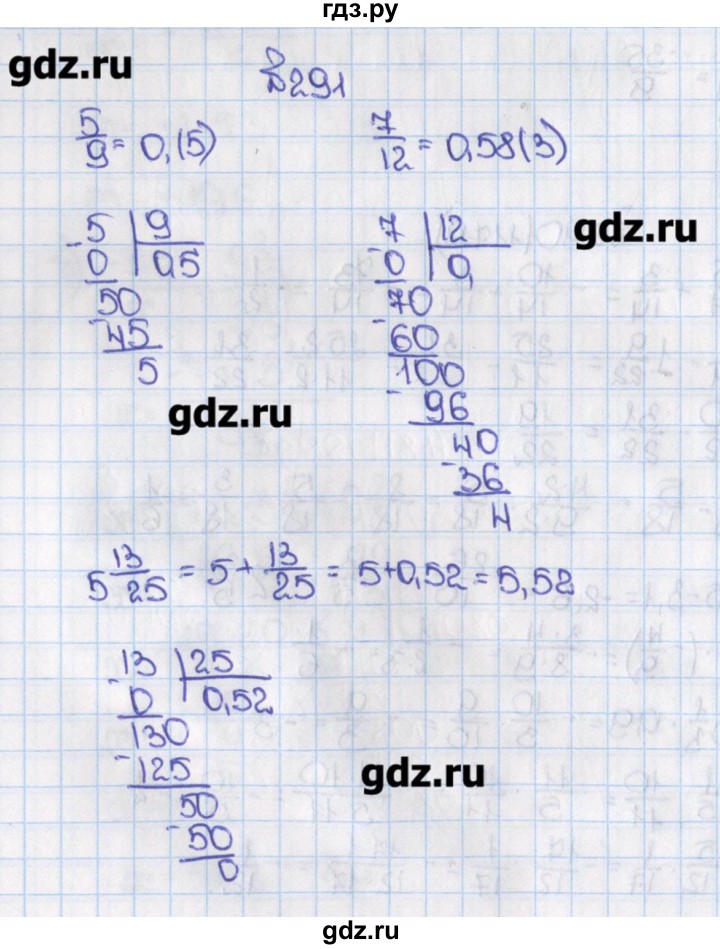 гдз.ру
gdz.ru
№291
5/9 = 0,(5)
7/12 = 0,58(3)
gdz.ru
-5 | 9
0 | 0,5
50
-45
5
-7 | 12
0 | 0,
70
-60
100
-96
40
-36
4
gdz.ru
5 13/25 = 5 + 13/25 = 5+0,52 = 5,52
-13 | 25
0 | 0,52
130
-125
50
-50
0
gdz.ru
gdz.ru